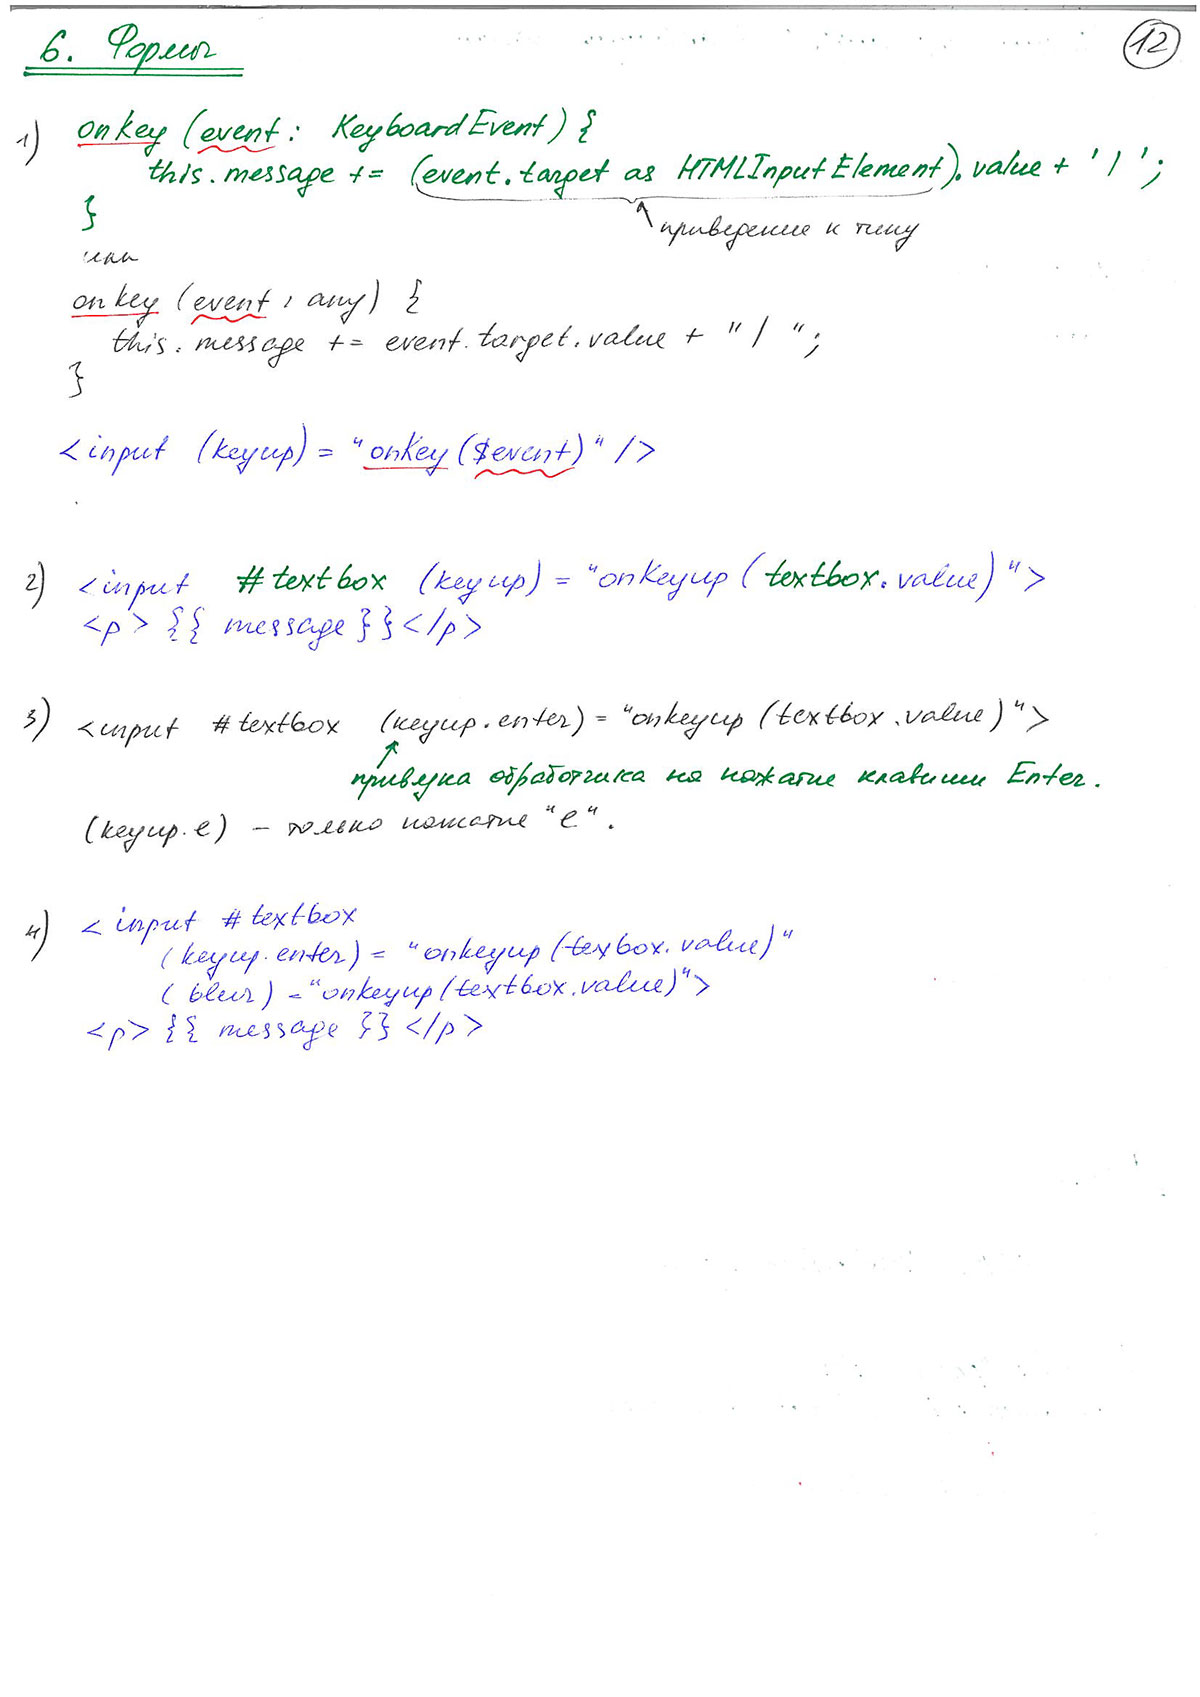 6. Формы
12
1) onkey (event: KeyboardEvent) {
this.message += (event.target as HTMLInputElement).value + ' / ';
}
приведение к типу
или
onkey (event : any) {
this.message += event.target.value + " / ";
}
<input (keyup) = "onKey($event)" />
2) <input #textbox (keyup) = "onKeyup (textbox.value)">
<p> {{ message }} </p>
3) <input #textbox (keyup.enter) = "onkeyup (textbox.value)">
привязка обработчика на нажатие клавиши Enter.
(keyup.e) – только нажатие "e".
4) < input #textbox
(keyup.enter) = "onkeyup (texbox.value)"
(blur) = "onkeyup(textbox.value)">
<p> {{ message }} </p>